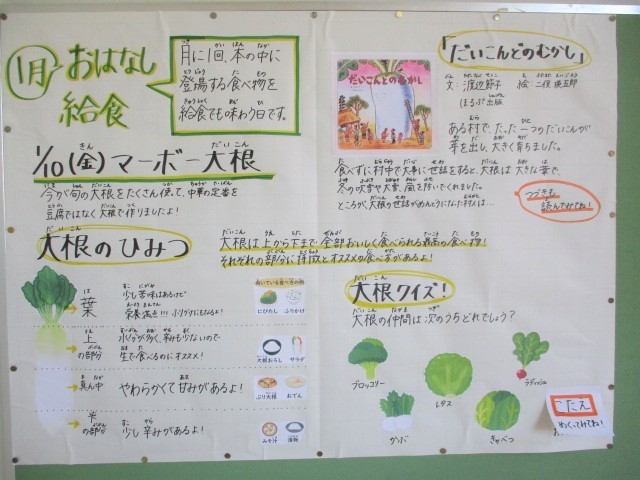 1月
おはなし
給食
月に1回、本の中に
登場する食べ物を
給食でも味わう日です。
1/10(金)マーボー大根
今が旬の大根をたくさん使って、中華の定番を
豆腐ではなく大根で作りましたよ!
大根のひみつ
大根は上から下まで全部おいしく食べられる最高の食べ物!
それぞれの部分に特徴とオススメの食べ方があるよ!
葉
少し苦味はあるけど
栄養満点!!! 小リグナにもなるよ!
上
の部分
水分が多く、辛みも少ないので
生で食べるのにオススメ!
真ん中
やわらかくて甘みがあるよ!
先
の部分
少し辛みがあるよ!
向いている食べ方の例
にびたし
ふりかけ
大根おろし
サラダ
ぶり大根
おでん
みそ汁
漬物
「だいこんどのむかし」
だいこんどのむかし
文:渡辺節子 絵:二俣英五郎
ほるぷ出版
ある村で、たった一つのだいこんが
芽を出し、大きく育ちました。
食べずに村中で大事に世話をすると、大根は大きな葉で、
冬の吹雪や大雪、風を防いでくれました。
ところが、大根の世話がめんどうになった村人は…
つづきを
読んでみてね!
大根クイズ!
大根の仲間は次のうちどれでしょう?
ブロッコリー
レタス
ラディッシュ
かぶ
きゃべつ
こたえ
めくってみてね!